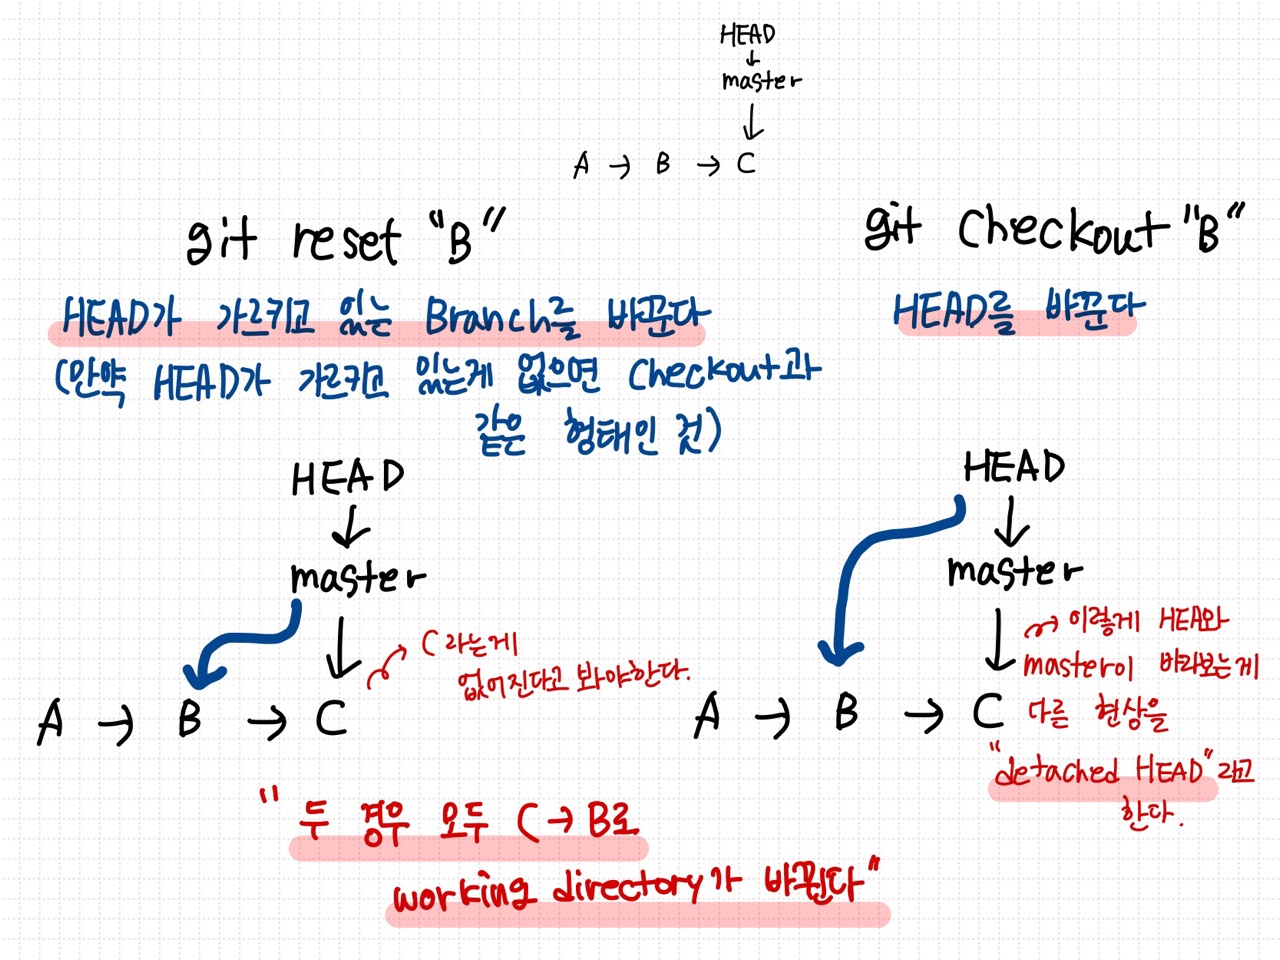 HEAD
↓
master
↓
A → B → C
git reset "B"
HEAD가 가르키고 있는 Branch를 바꾼다
(만약 HEAD가 가르키고 있는게 없으면 Checkout과
같은 형태인 것)
HEAD
↓
master
↓
C 라는게
없어진다고 봐야한다.
A → B → C
git checkout "B"
HEAD를 바꾼다
HEAD
↓
master
↓
이렇게 HEAD와
master이 바라보는게
A → B → C 다른 현상을
"detached HEAD"라고
한다.
"두 경우 모두 C → B로
working directory가 바뀐다"